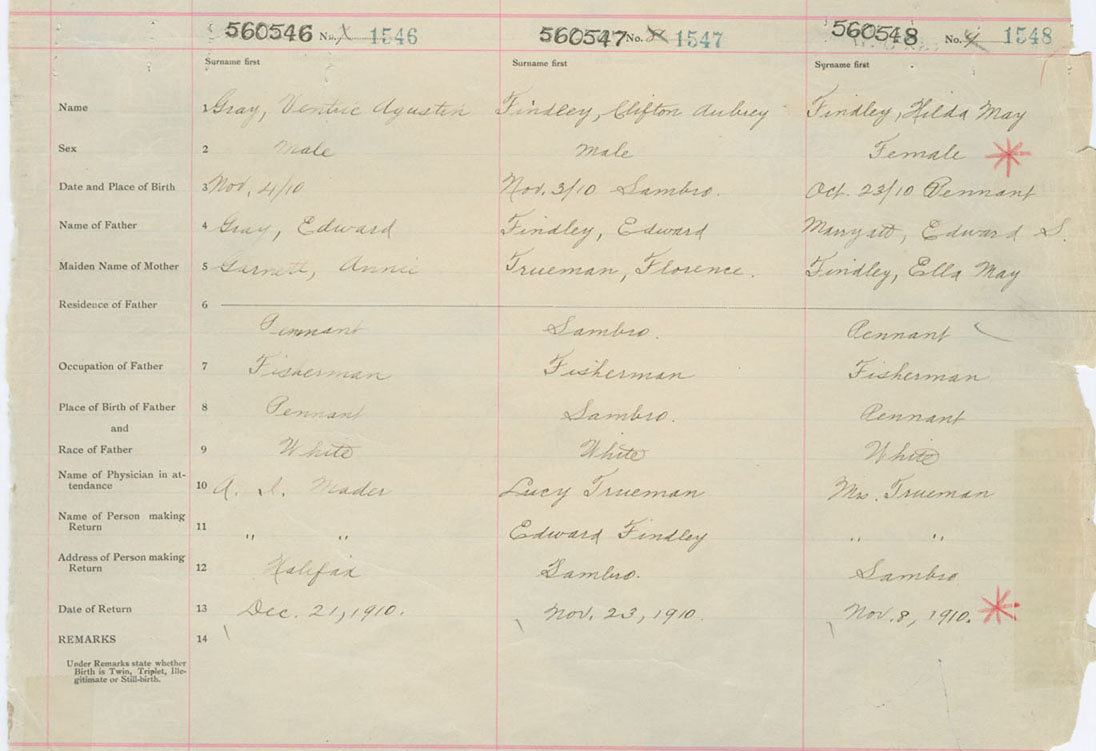 560546 No. 1 1546 560547 No. 1547 560548 No. 4 1548
Surname first Surname first Surname first
Name 1 Gray, Ventric Agustin Findley, Clifton Aubrey Findley, Hilda May
Sex 2 Male Male Female
Date and Place of Birth 3 Nov. 4/10 Nov. 3/10 Sambro. Oct. 23/10 Pennant
Name of Father 4 Gray, Edward Findley, Edward Marryatt, Edward S.
Maiden Name of Mother 5 Garnett, Annie Trueman, Florence. Findley, Ella May
Residence of Father 6
Pennant Sambro. Pennant
Occupation of Father 7 Fisherman Fisherman Fisherman
Place of Birth of Father 8 Pennant Sambro. Pennant
and
Race of Father 9 White White White
Name of Physician in at-
tendance 10 A. I. Mader Lucy Trueman Mrs. Trueman
Name of Person making
Return 11 " " Edward Findley " "
Address of Person making
Return 12 Halifax Sambro. Sambro
Date of Return 13 Dec. 21, 1910. Nov. 23, 1910. Nov. 8, 1910.
REMARKS 14
Under Remarks state whether
Birth is Twin, Triplet, Ille-
gitimate or Still-birth.